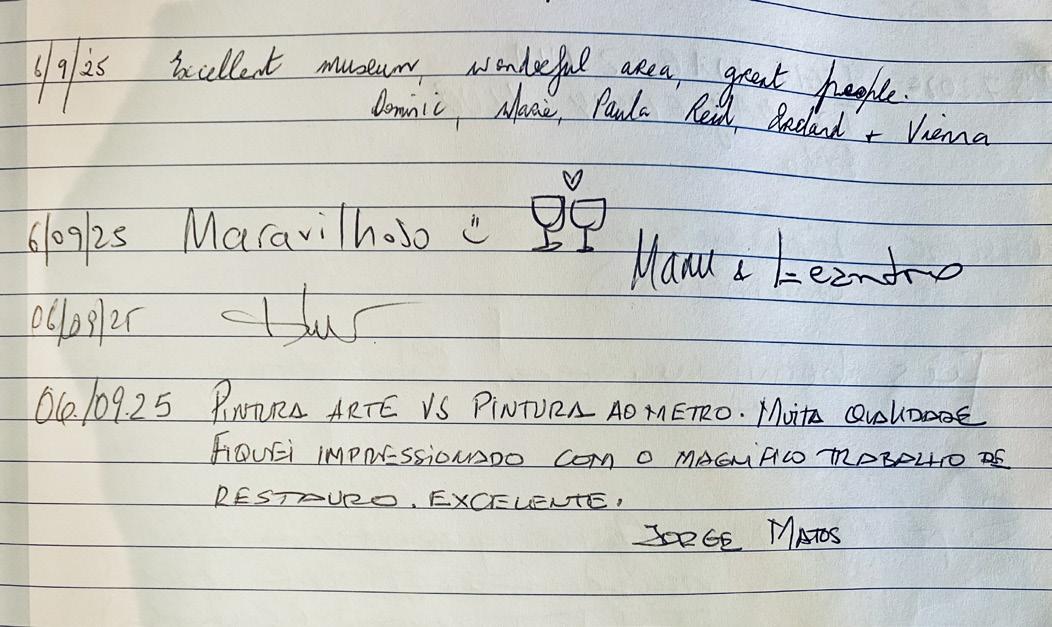 6/9/25 Excellent museum, wonderful area, great people.
Dominic, Marie, Paula Reid, Ireland + Vienna
6/09/25 Maravilhoso :)
Manu & Leandro
06/09/25
06/09.25 PINTURA ARTE VS PINTURA AO METRO. MUITA QUALIDADE
FIQUEI IMPRESSIONADO COM O MAGNIFICO TRABALHO DE
RESTAURO. EXCELENTE.
JORGE MATOS